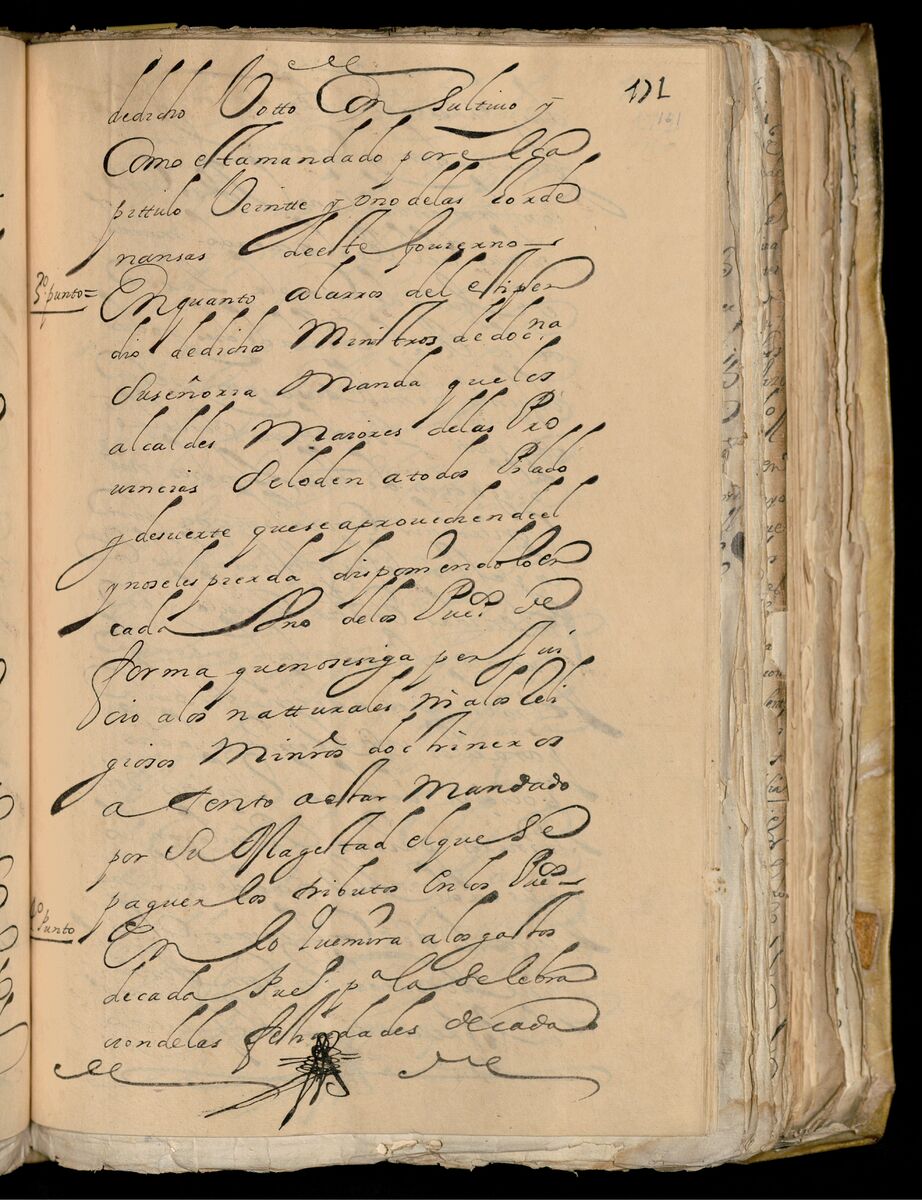 171
161
dedicho Votto Consultiuo y
Como estamandado porelca
pittulo Veintte y Vno delas horde
nansas deeste Gouierno
3º punto =
En quanto alarros del estipen
dio dedichos Ministros de docna
Suseñoria Manda quelos
alcaldes Maiores delas Pro
uincias Seloden atodos Pilado
ydesuerte queseaprouechendeel
ynoselespierda disponiendoloen
cada Vno delos Puebs de
forma quenosesiga perJui
cio alos natturales ni alos Reli
giosos Minros doctrineros
atento aestar Mandado
por Su Magestad elque Se
paguen los tributos En los Pues
4º punto
En lo quemira alosgastos
decada Puebº pª la Selebra
ciondelas festiuidades decada